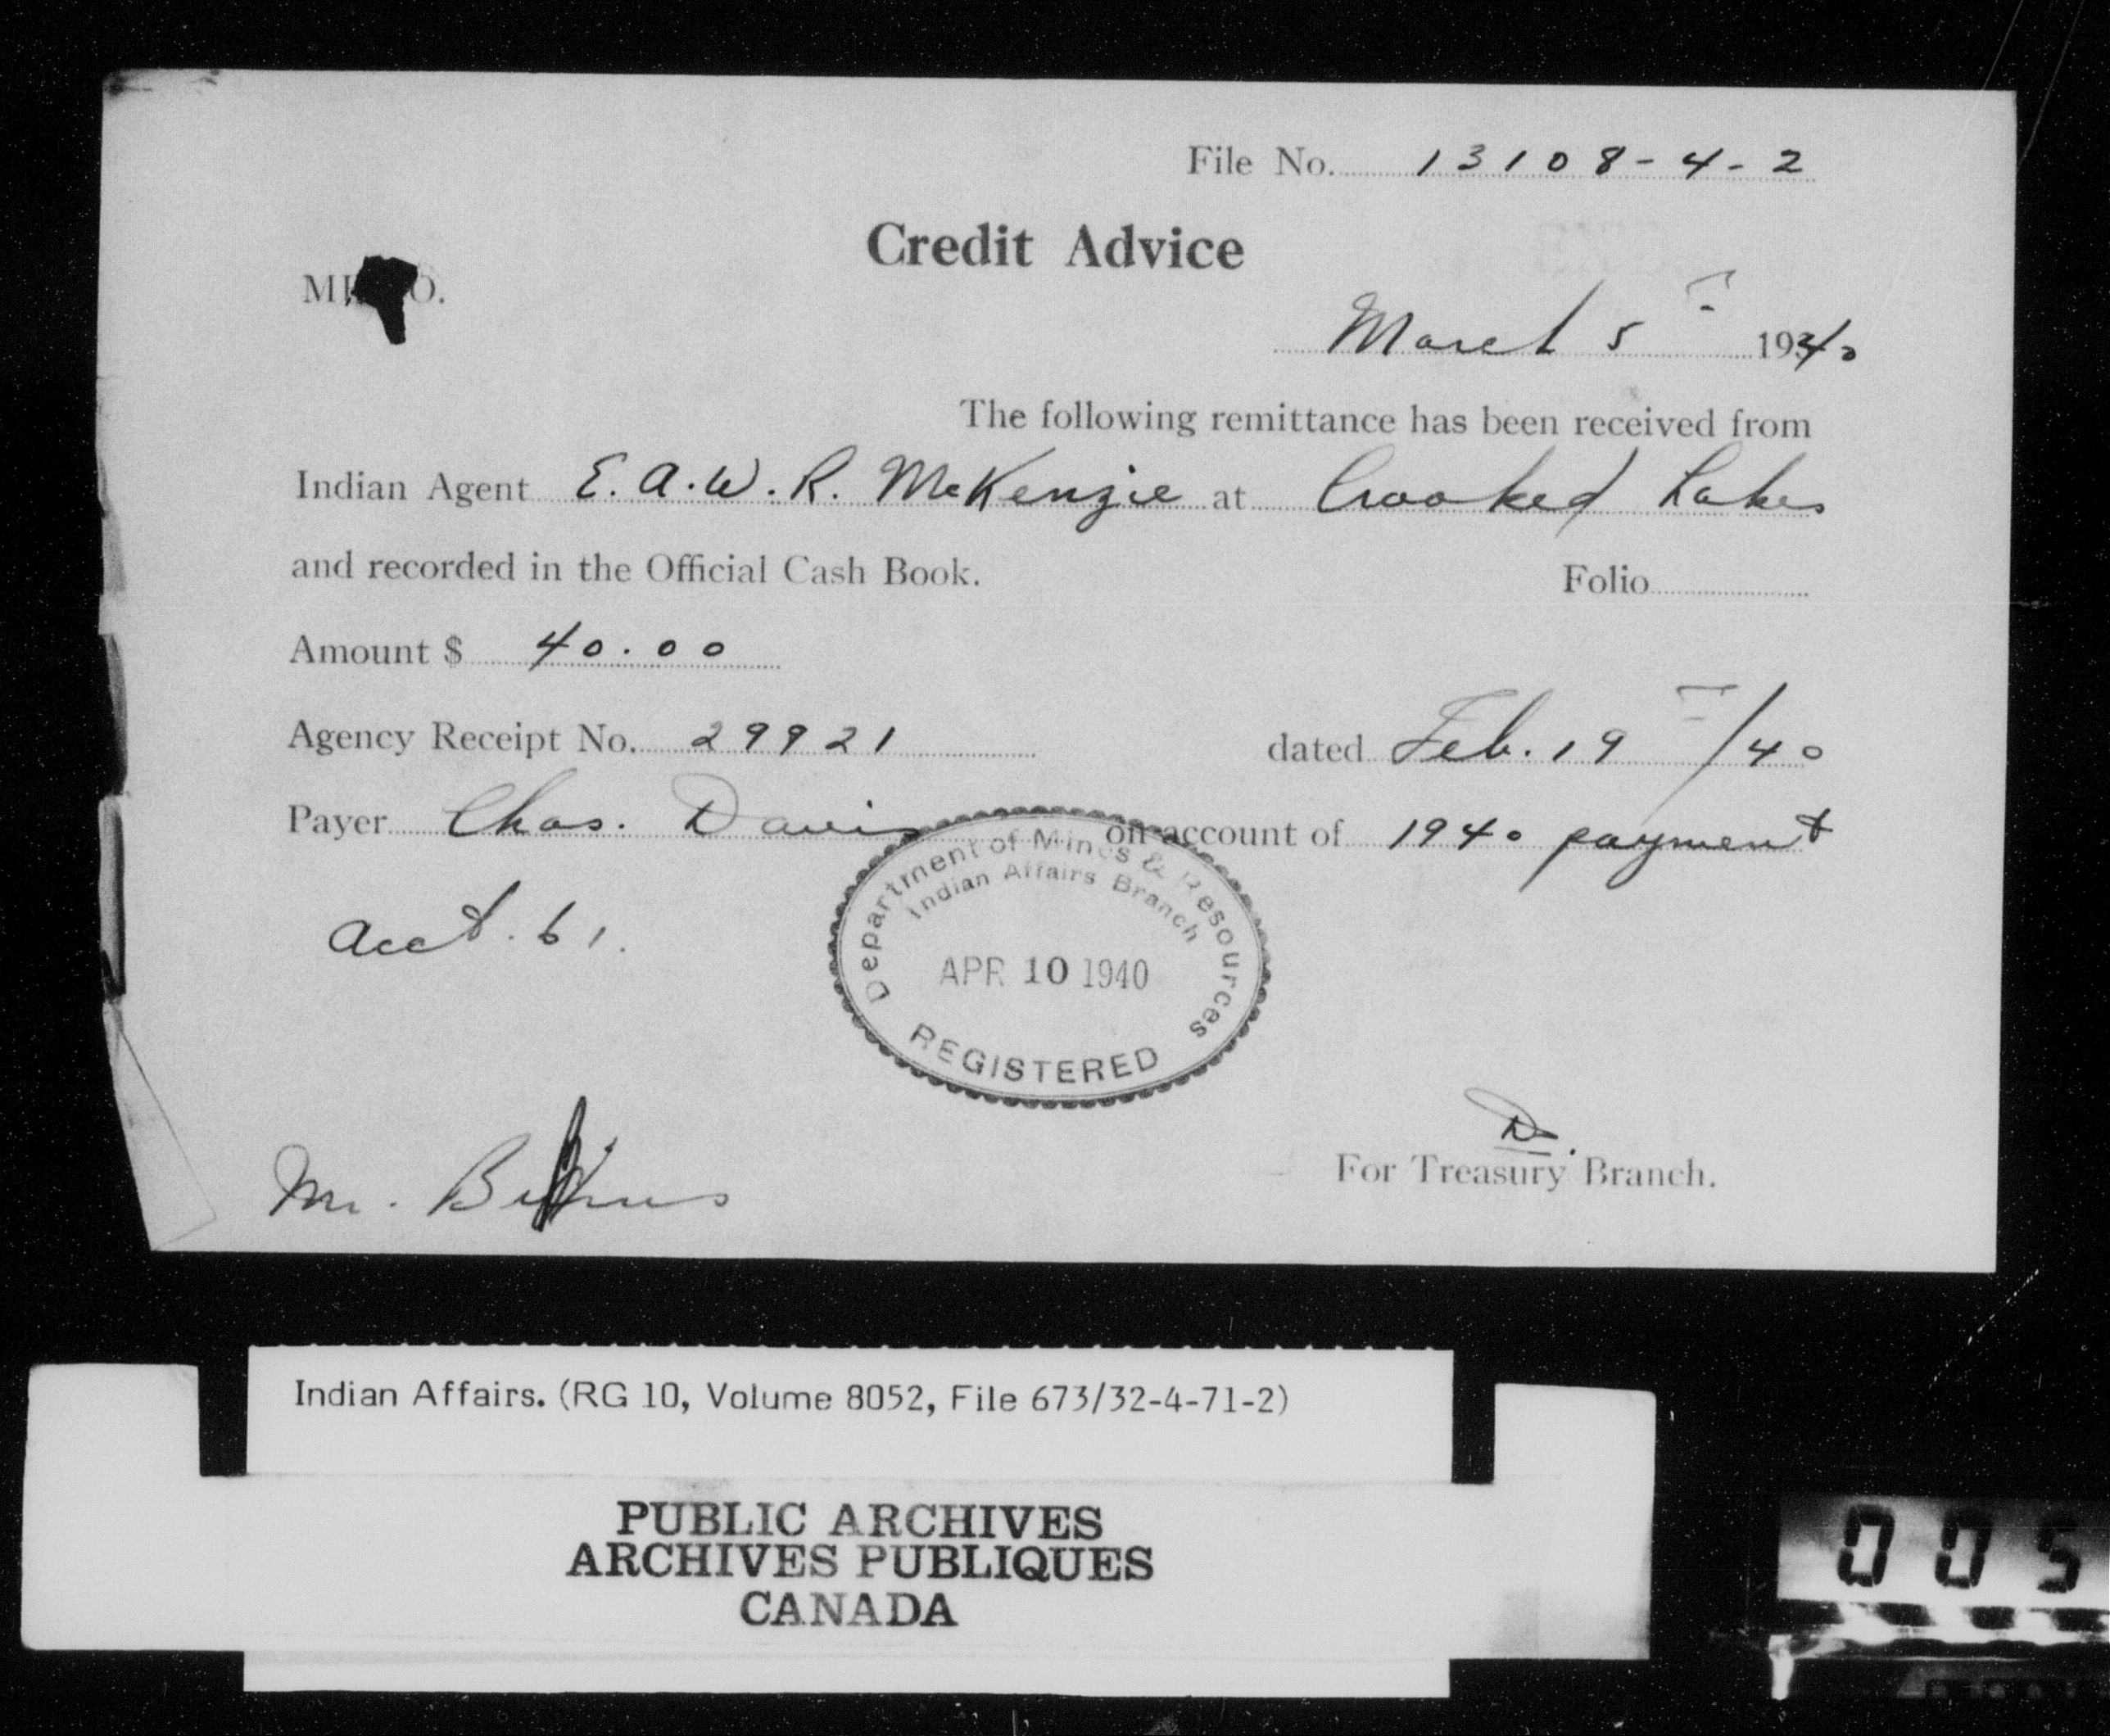 File No. 13108-4-2
Credit Advice
March 5 1940
The following remittance has been received from
Indian Agent E. A. W. R. McKenzie at Crooked Lakes
and recorded in the Official Cash Book. Folio
Amount $ 40.00
Agency Receipt No. 29921 dated Feb. 19 /40
Payer Chas. Davis on account of 1940 payment
acct. 61.
Department of Mines & Resources
Indian Affairs Branch
APR 10 1940
REGISTERED
D.
For Treasury Branch.
Mr.
Indian Affairs. (RG 10, Volume 8052, File 673/32-4-71-2)
PUBLIC ARCHIVES
ARCHIVES PUBLIQUES
CANADA
005